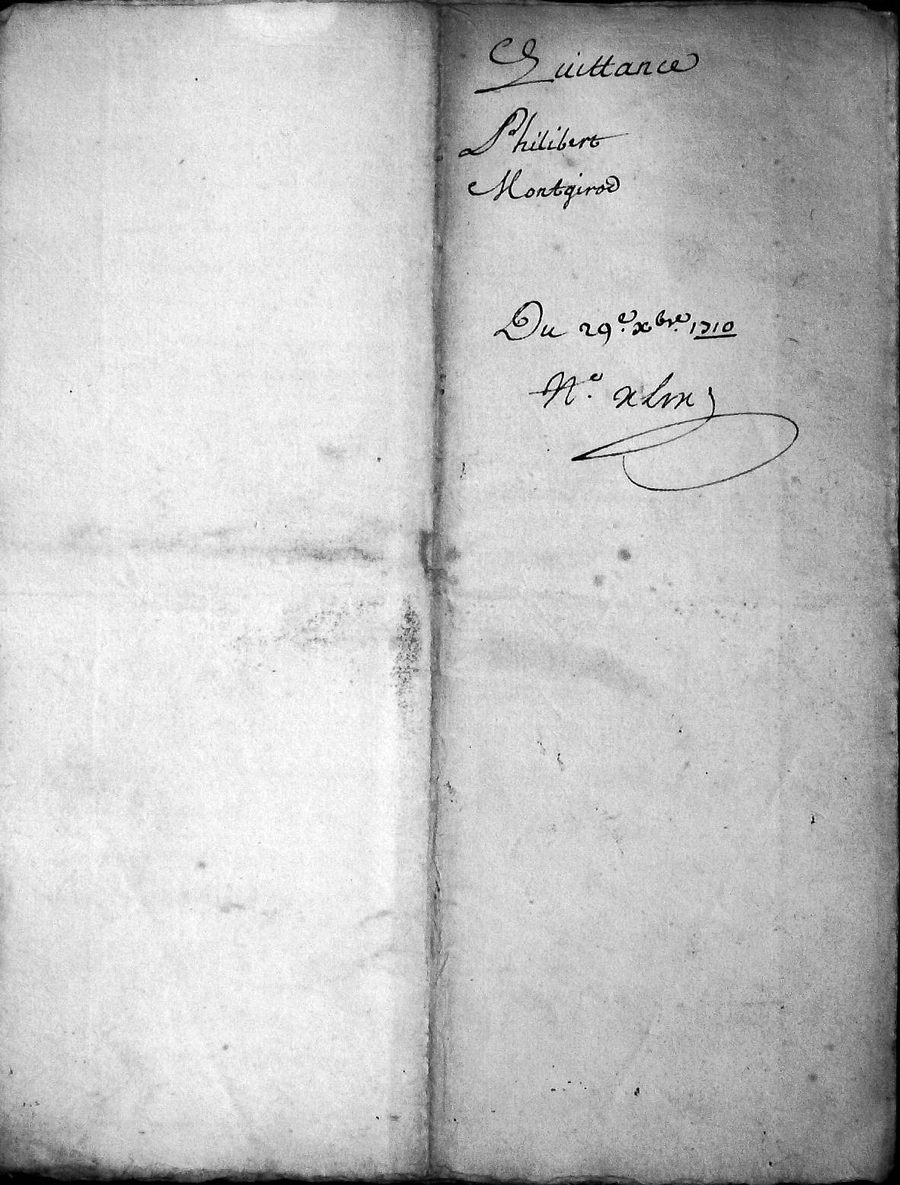 Quittance
Philibert
Montgirod
Du 29.e xbre. 1710
N.e